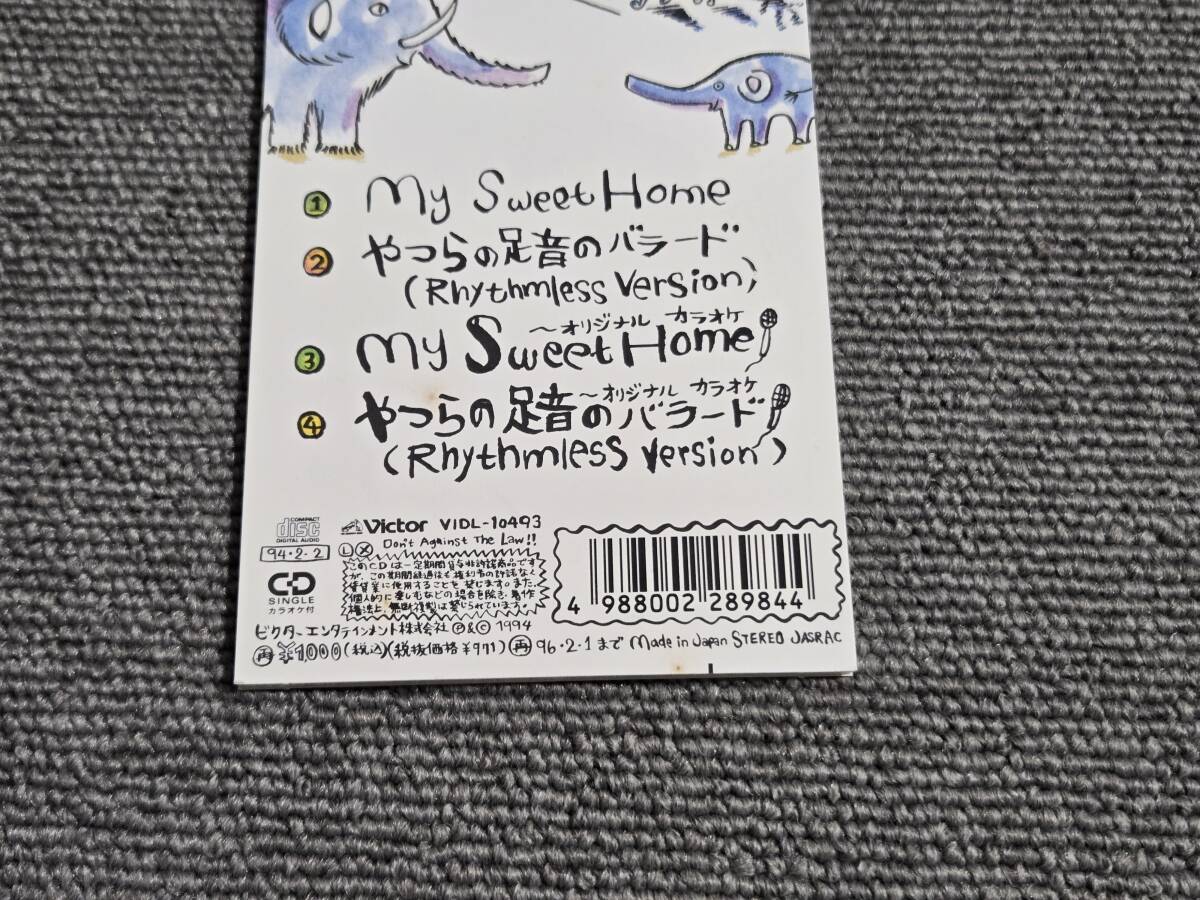 1 My Sweet Home
2 やつらの足音のバラード
(Rhythmless Version)
~オリジナル カラオケ
3 My Sweet Home
~オリジナル カラオケ
4 やつらの足音のバラード
(Rhythmless Version)
COMPACT
disc
DIGITAL AUDIO
Victor VIDL-10493
Don't Against The Law!!
94・2・2
L X
このCDは一定期間貸与非許諾商品です
が、この期間経過後も権利者の許諾なく
賃貸業に使用することを禁じます。また、
個人的に楽しむなどの場合を除き、著作
権法上、無断複製は禁じられています。
CD
SINGLE
カラオケ付
4 988002 289844
ビクターエンタテインメント株式会社 Ⓟ&© 1994
再 ¥1000(税込)(税抜価格¥971) 再 96・2・1まで Made in Japan STEREO JASRAC